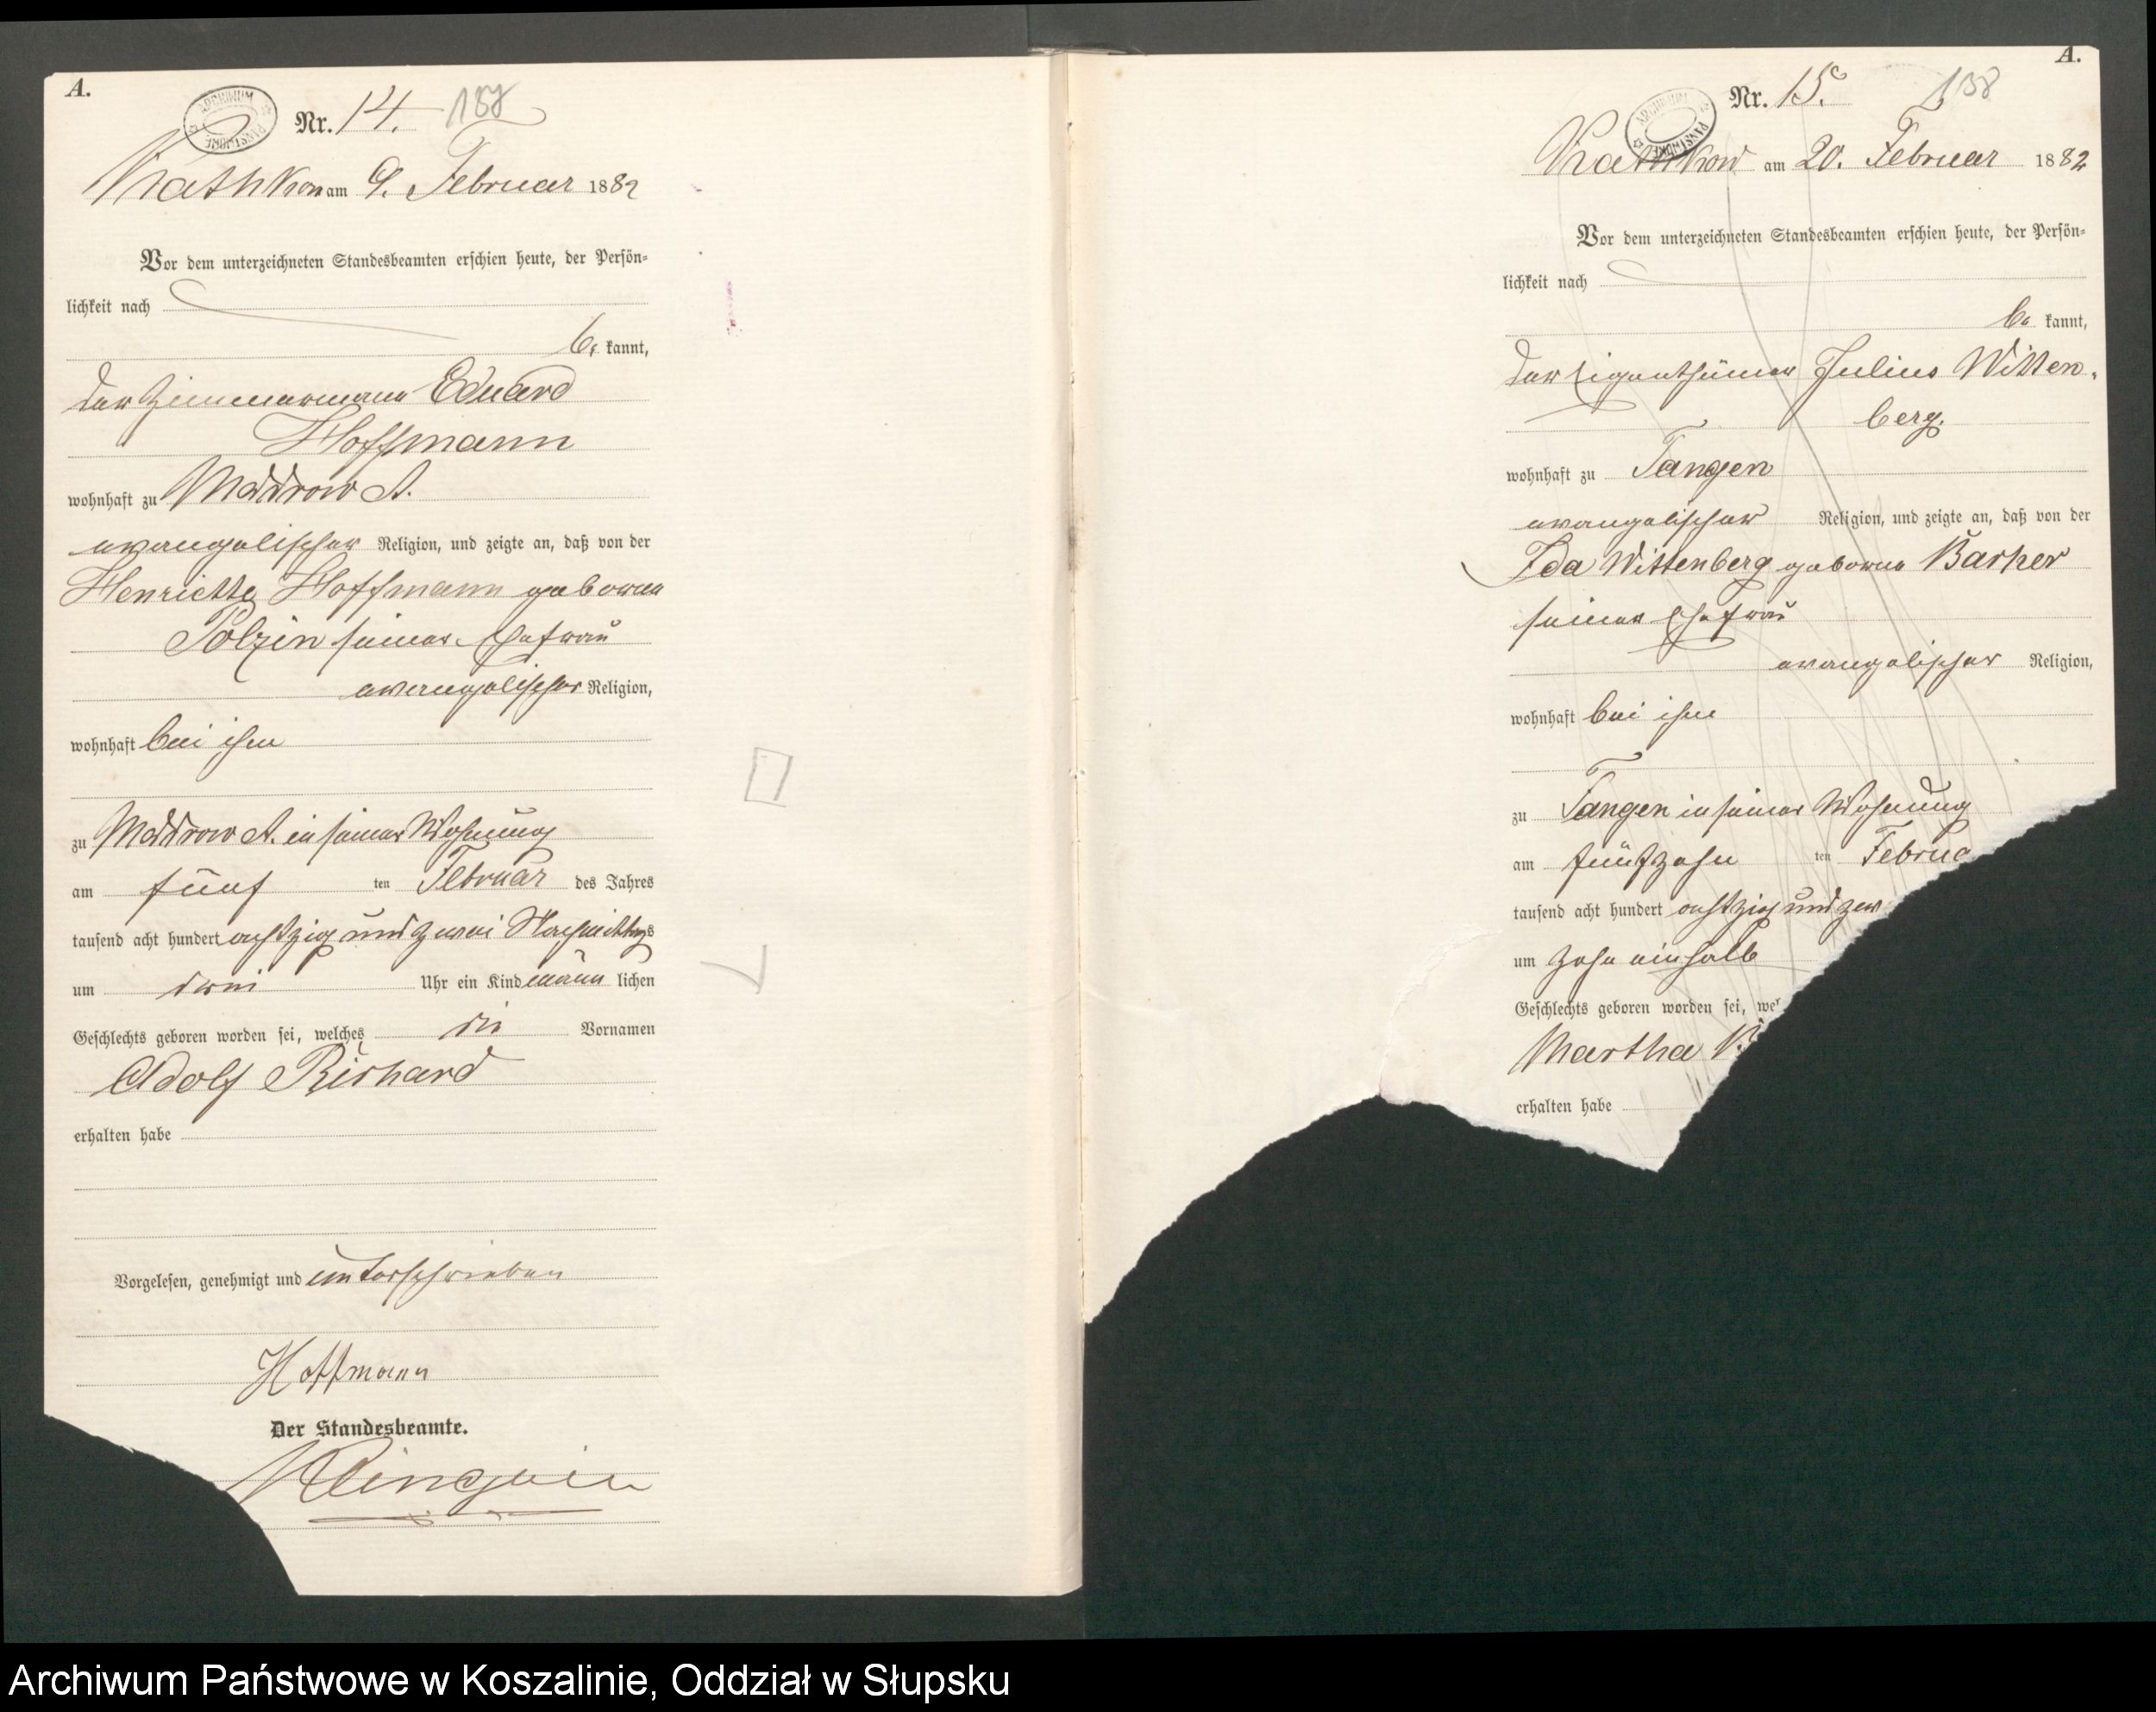 A.
ARCHIWUM PAŃSTWOWE
Nr. 14. 157
am 9. Februar 1882
Vor dem unterzeichneten Standesbeamten erschien heute, der Persön-
lichkeit nach
be kannt,
der Zimmermann Eduard
Hoffmann
wohnhaft zu Maddrow A.
evangelischer Religion, und zeigte an, daß von der
Henriette Hoffmann geborenen
Polzin seiner Ehefrau
evangelischer Religion,
wohnhaft bei ihm
zu Maddrow A. in seiner Wohnung
am fünf ten Februar des Jahres
tausend acht hundert achtzig und zwei Nachmittags
um drei Uhr ein Kind männ lichen
Geschlechts geboren worden sei, welches die Vornamen
Adolf Richard
erhalten habe
Vorgelesen, genehmigt und unterschrieben
Hoffmann
Der Standesbeamte.
A.
ARCHIWUM PAŃSTWOWE
Nr. 15. 158
am 20. Februar 1882
Vor dem unterzeichneten Standesbeamten erschien heute, der Persön-
lichkeit nach
be kannt,
der Eigenthümer Julius Witten-
berg.
wohnhaft zu Tangen
evangelischer Religion, und zeigte an, daß von der
Ida Wittenberg geborene
seiner Ehefrau
evangelischer Religion,
wohnhaft bei ihm
zu Tangen in seiner Wohnung
am fünfzehn ten Februa
tausend acht hundert achtzig und zw
um zehn einhalb
Geschlechts geboren worden sei, wel
Martha
erhalten habe
Archiwum Państwowe w Koszalinie, Oddział w Słupsku